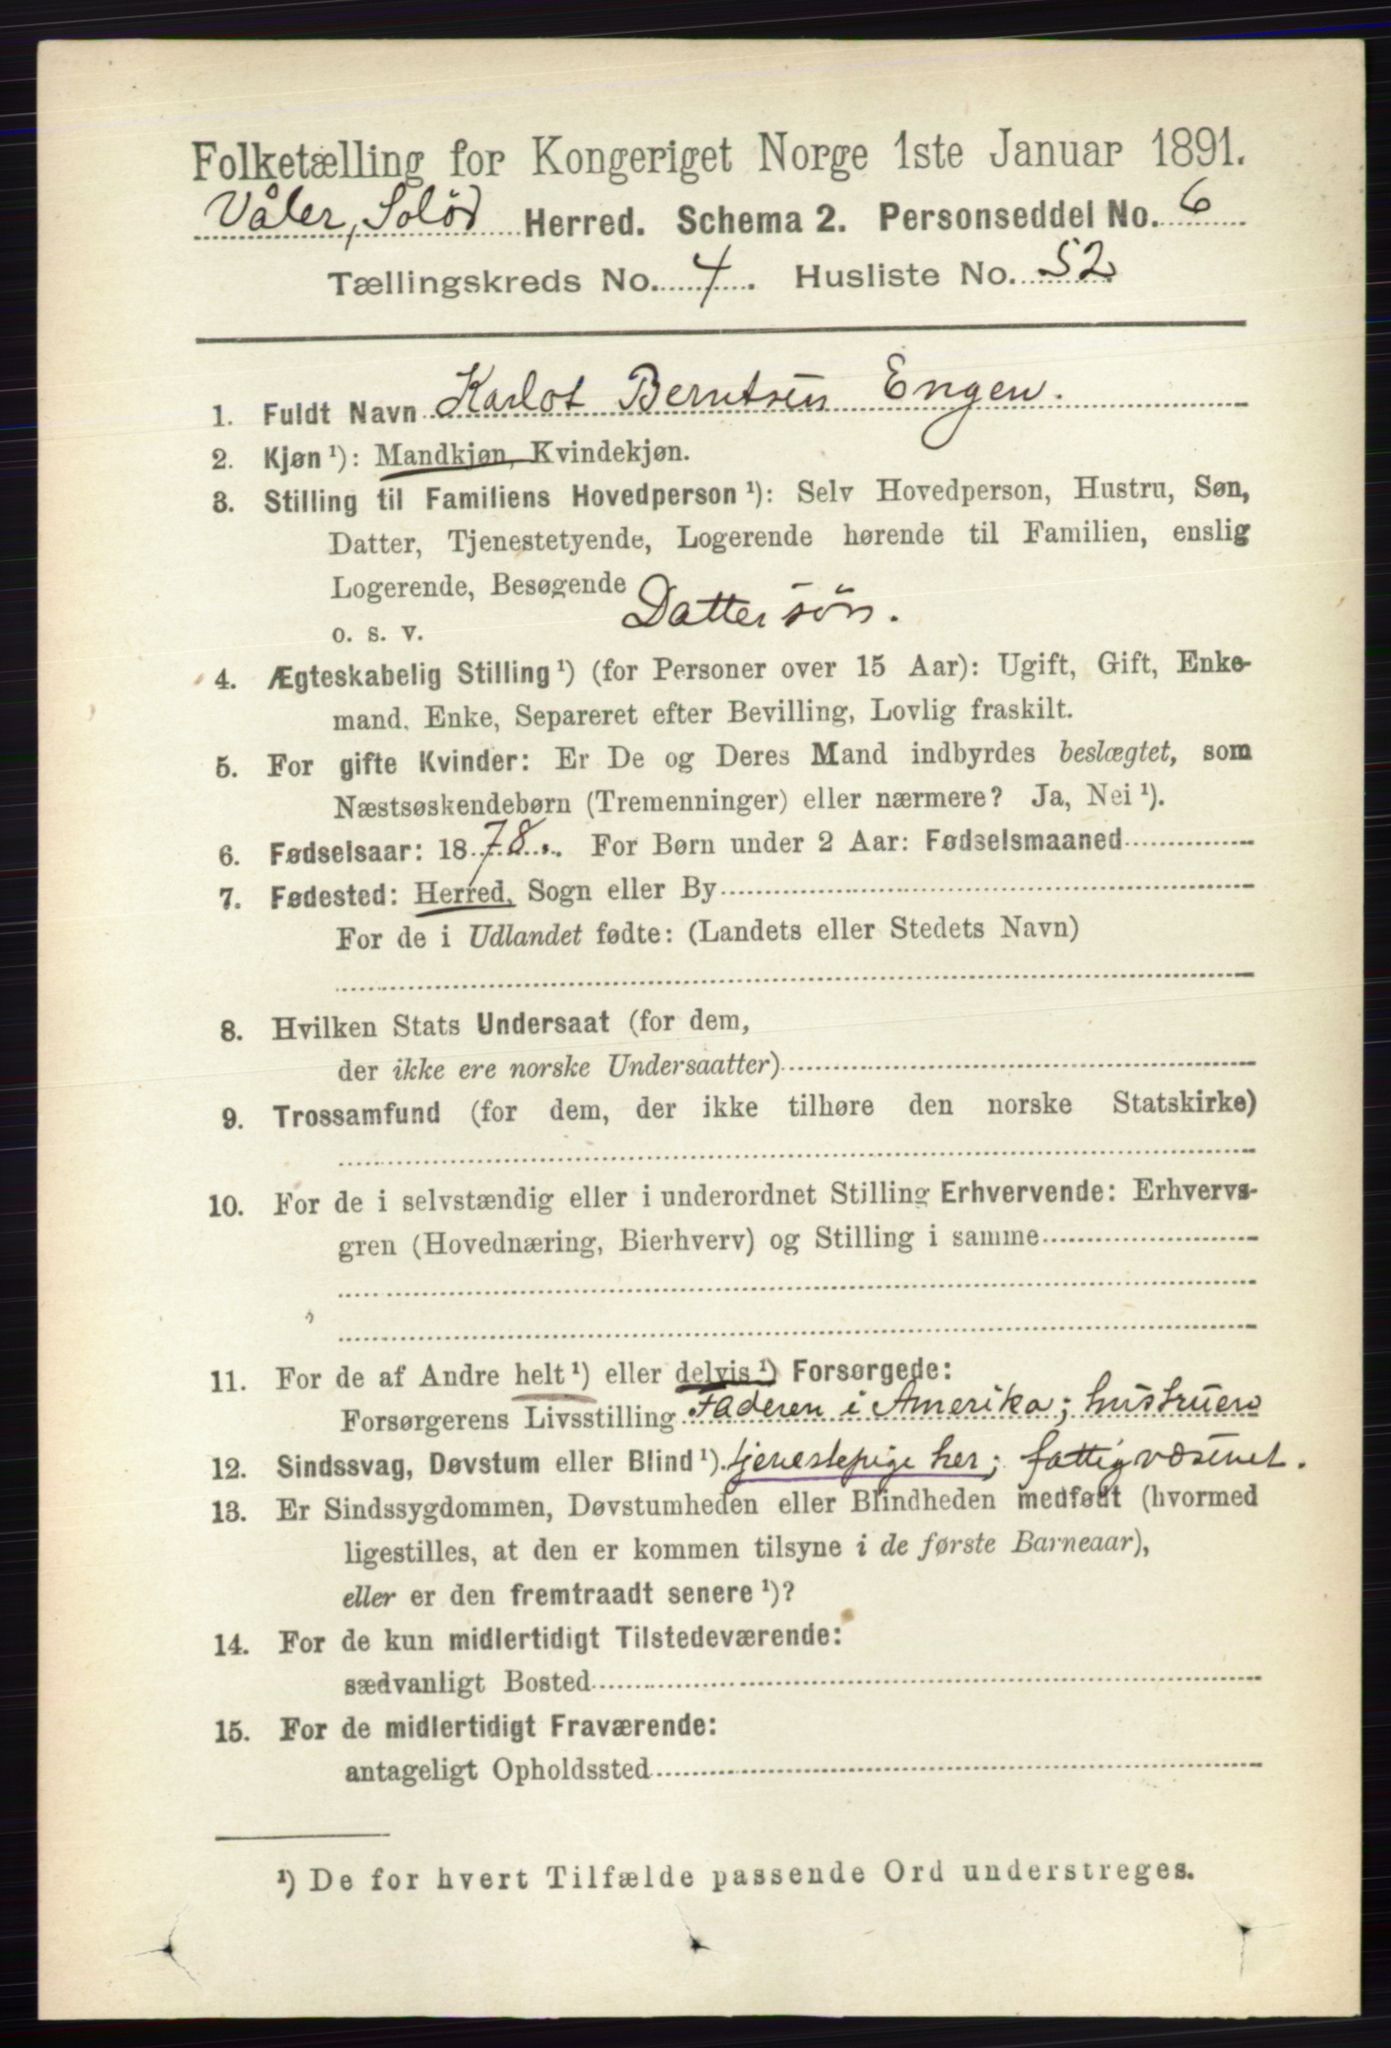 Folketælling for Kongeriget Norge 1ste Januar 1891.
Våler, Solør Herred. Schema 2. Personseddel No. 6
Tællingskreds No. 4. Husliste No. 52
1. Fuldt Navn Karlot Berntsen Engen.
2. Kjøn ¹): Mandkjøn, Kvindekjøn.
3. Stilling til Familiens Hovedperson ¹): Selv Hovedperson, Hustru, Søn,
Datter, Tjenestetyende, Logerende hørende til Familien, enslig
Logerende, Besøgende
o. s. v. Dattersøn.
4. Ægteskabelig Stilling ¹) (for Personer over 15 Aar): Ugift, Gift, Enke-
mand, Enke, Separeret efter Bevilling, Lovlig fraskilt.
5. For gifte Kvinder: Er De og Deres Mand indbyrdes beslægtet, som
Næstsøskendebørn (Tremenninger) eller nærmere? Ja, Nei ¹).
6. Fødselsaar: 1878. For Børn under 2 Aar: Fødselsmaaned
7. Fødested: Herred, Sogn eller By
For de i Udlandet fødte: (Landets eller Stedets Navn)
8. Hvilken Stats Undersaat (for dem,
der ikke ere norske Undersaatter)
9. Trossamfund (for dem, der ikke tilhøre den norske Statskirke)
10. For de i selvstændig eller i underordnet Stilling Erhvervende: Erhvervs-
gren (Hovednæring, Bierhverv) og Stilling i samme
11. For de af Andre helt ¹) eller delvis ¹) Forsørgede:
Forsørgerens Livsstilling Faderen i Amerika; hustruen
12. Sindssvag, Døvstum eller Blind ¹). tjenestepige her; fattigvæsenet.
13. Er Sindssygdommen, Døvstumheden eller Blindheden medfødt (hvormed
ligestilles, at den er kommen tilsyne i de første Barneaar),
eller er den fremtraadt senere ¹)?
14. For de kun midlertidigt Tilstedeværende:
sædvanligt Bosted
15. For de midlertidigt Fraværende:
antageligt Opholdssted
¹) De for hvert Tilfælde passende Ord understreges.